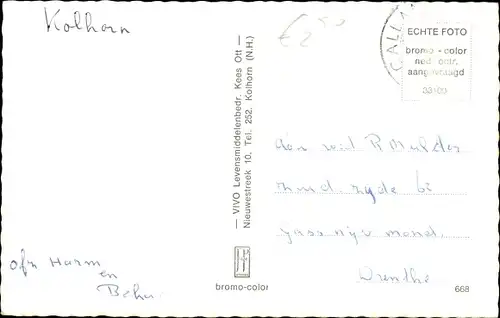 Kolhorn
€ 2,50
CALLA
ECHTE FOTO
bromo - color
ned. octr.
aangevraagd
— VIVO Levensmiddelenbedr. Kees Ott —
Nieuwestreek 10. Tel. 252. Kolhorn (N.H.)
R Mulder
zuid zyde 62
gass nyv mond.
Drenthe
afz Harm
en
bromo-color
668